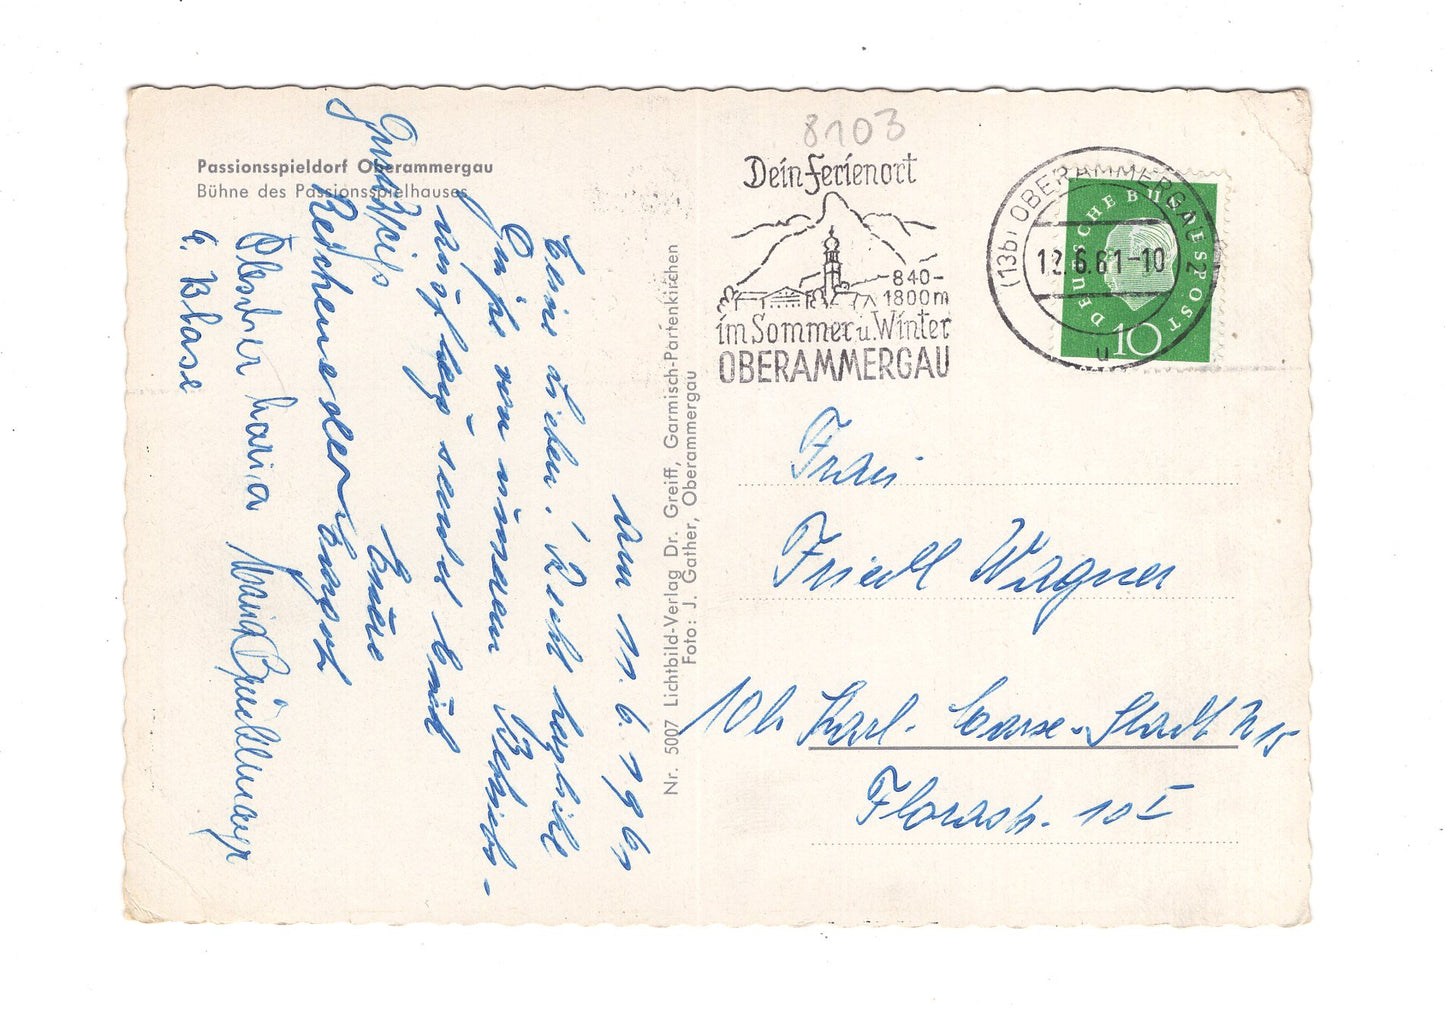 Passionsspieldorf Oberammergau
Bühne des Passionsspielhauses
8103
Dein Ferienort
840-
1800m
im Sommer u. Winter
OBERAMMERGAU
(13b) OBERAMMERGAU 2
12.6.61-10
u
DEUTSCHE BUNDESPOST
10
Nr. 5007 Lichtbild-Verlag Dr. Greiff, Garmisch-Partenkirchen
Foto: J. Gather, Oberammergau
am 11. 6. 1961
Lieben! Recht herzliche
Grüße von unserem Betriebs-
ausflug sendet Euch
Eure
Maria
G. Blase
Frau
Friedl Wagner
10b Karl-Marx-Stadt N 15
Florastr. 10 I